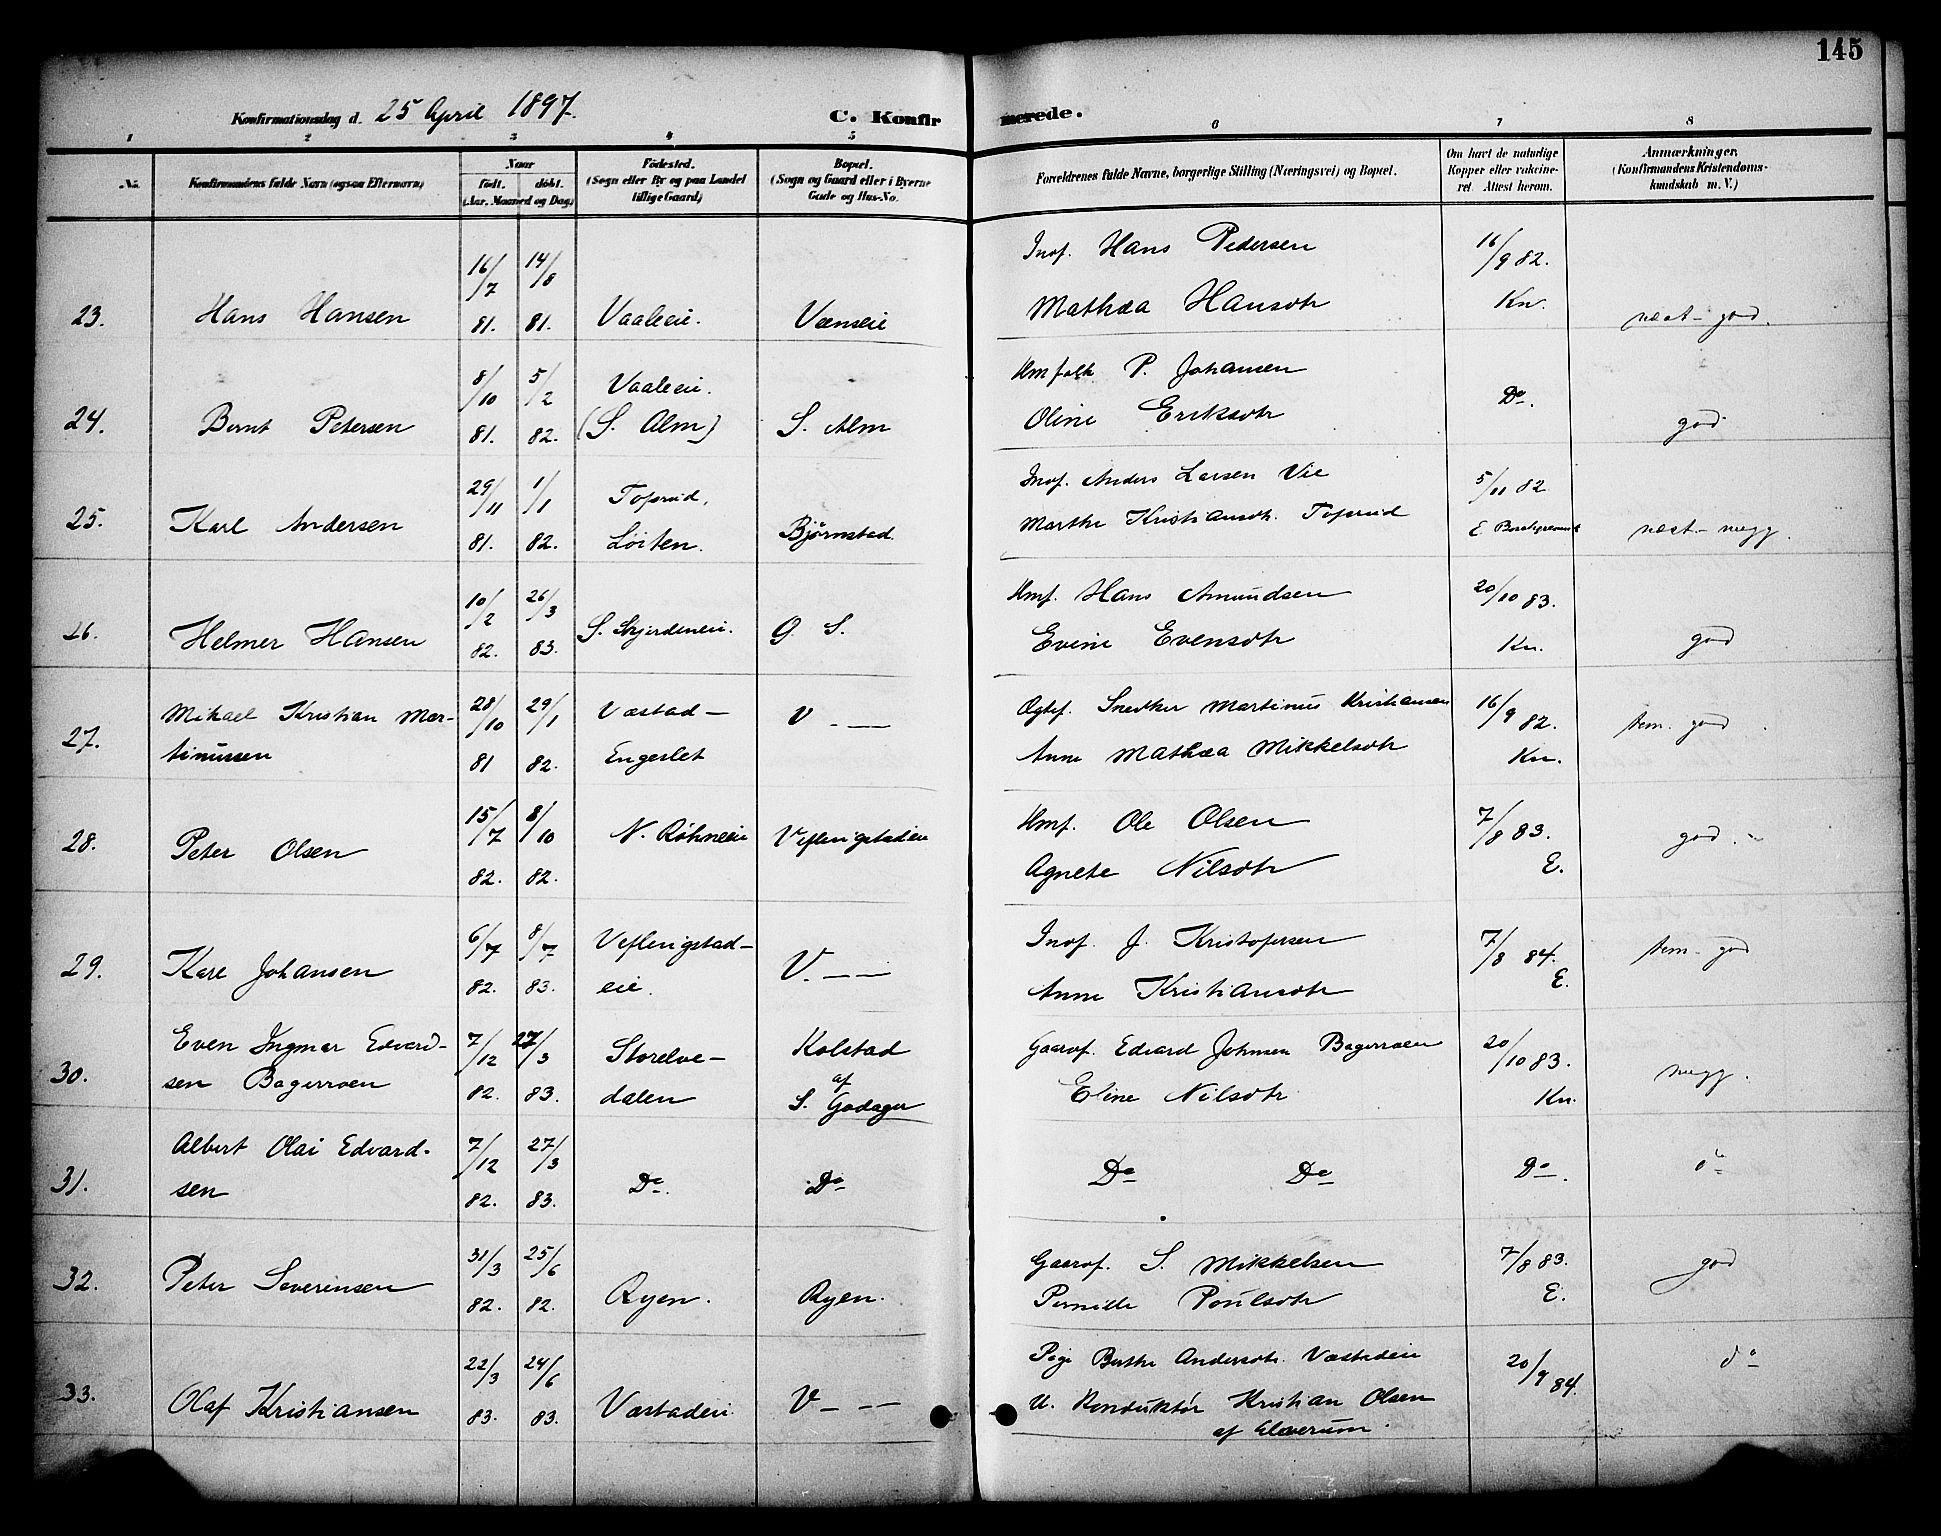 145
Konfirmationsdag d. 25 April 1897. C. Konfirmerede.
1 2 3 4 5 6 7 8
No. Konfirmandens fulde Navn (ogsaa Efternavn) Naar født. døbt. (Aar, Maaned og Dag.) Fødested. (Sogn eller By og paa Landet tillige Gaard) Bopæl. (Sogn og Gaard eller i Byerne Gade og Hus-No. Forældrenes fulde Navne, borgerlige Stilling (Næringsvei) og Bopæl. Om havt de naturlige Kopper eller vakcineret Attest herom. Anmærkninger. (Konfirmandens Kristendomskundskab m. V.)
16/7 14/8 Inds. Hans Pedersen 16/9 82.
23. Hans Hansen 81. 81. Vaaleeie. Vænseie Mathea Hansdtr Kn. næst-god.
8/10 5/2 Vaaleeie. Hmfolk P. Johansen Do.
24. Bernt Petersen 81. 82. (S. Alm) S. Alm Oline Eriksdtr god
29/11 1/1 Toprud, Inds. Anders Larsen Vie 5/11 82
25. Karl Andersen 81. 82. Løiten. Bjørnstad Marthe Kristiansdtr. Toprud E. næst-megg.
10/2 26/3 Hmf. Hans Amundsen 20/10 83.
26. Helmer Hansen 82. 83. S. Skjerdeneie. G. S. Evine Evensdtr Kn. god
Mikael Kristian Mar- 28/10 29/1 Væstad- V - — Ægtef. Snedker Martinus Kristiansen 16/9 82. tem. god
27. tinussen 81 82. Engerlet Anne Mathea Mikkelsdtr Kn.
15/7 8/10 Hmf. Ole Olsen 7/8 83.
28. Peter Olsen 82. 82. N. Røhneeie Veflingstadeie Agnete Nilsdtr E. god.
6/7 8/7 Veflingstad- Inds. J. Kristofersen 7/8 84. tem-god
29. Karl Johansen 82. 83. eie. V. - - Anne Kristiansdtr E.
Even Ingmar Edvard- 7/12 27/3 Storelve- Kolstad Gaardf. Edvard Johnsen Bagerroen 20/10 83.
30. sen Bagerroen 82. 83. dalen af S. Godager Eline Nilsdtr Kn. megg.
Albert Olai Edvard- 7/12 27/3
31. sen 82. 83. Do. Do Do Do Do. do
31/3 25/6 Gaardf. S. Mikkelsen 7/8 83. god
32. Peter Severinsen 82. 82. Ryen. Ryen. Pernille Poulsdtr E.
22/3 24/6 Pige Berthe Andersdtr. Væstadeie 20/9 84. do
33. Olaf Kristiansen 83. 83. Væstadeie. V - - — U. Konduktør Kristian Olsen
af Elverum.